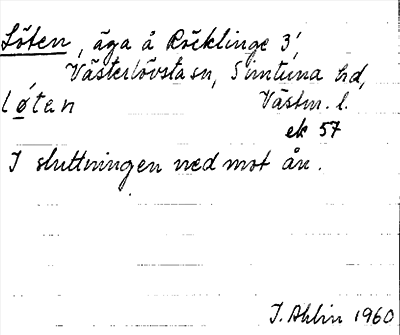 Löten, äga å Röcklinge 3¹,
Västerlövsta sn, Simtuna hd,
Västm. l.
løtan
ek 57
I sluttningen ned mot ån.
I. Ahlin 1960